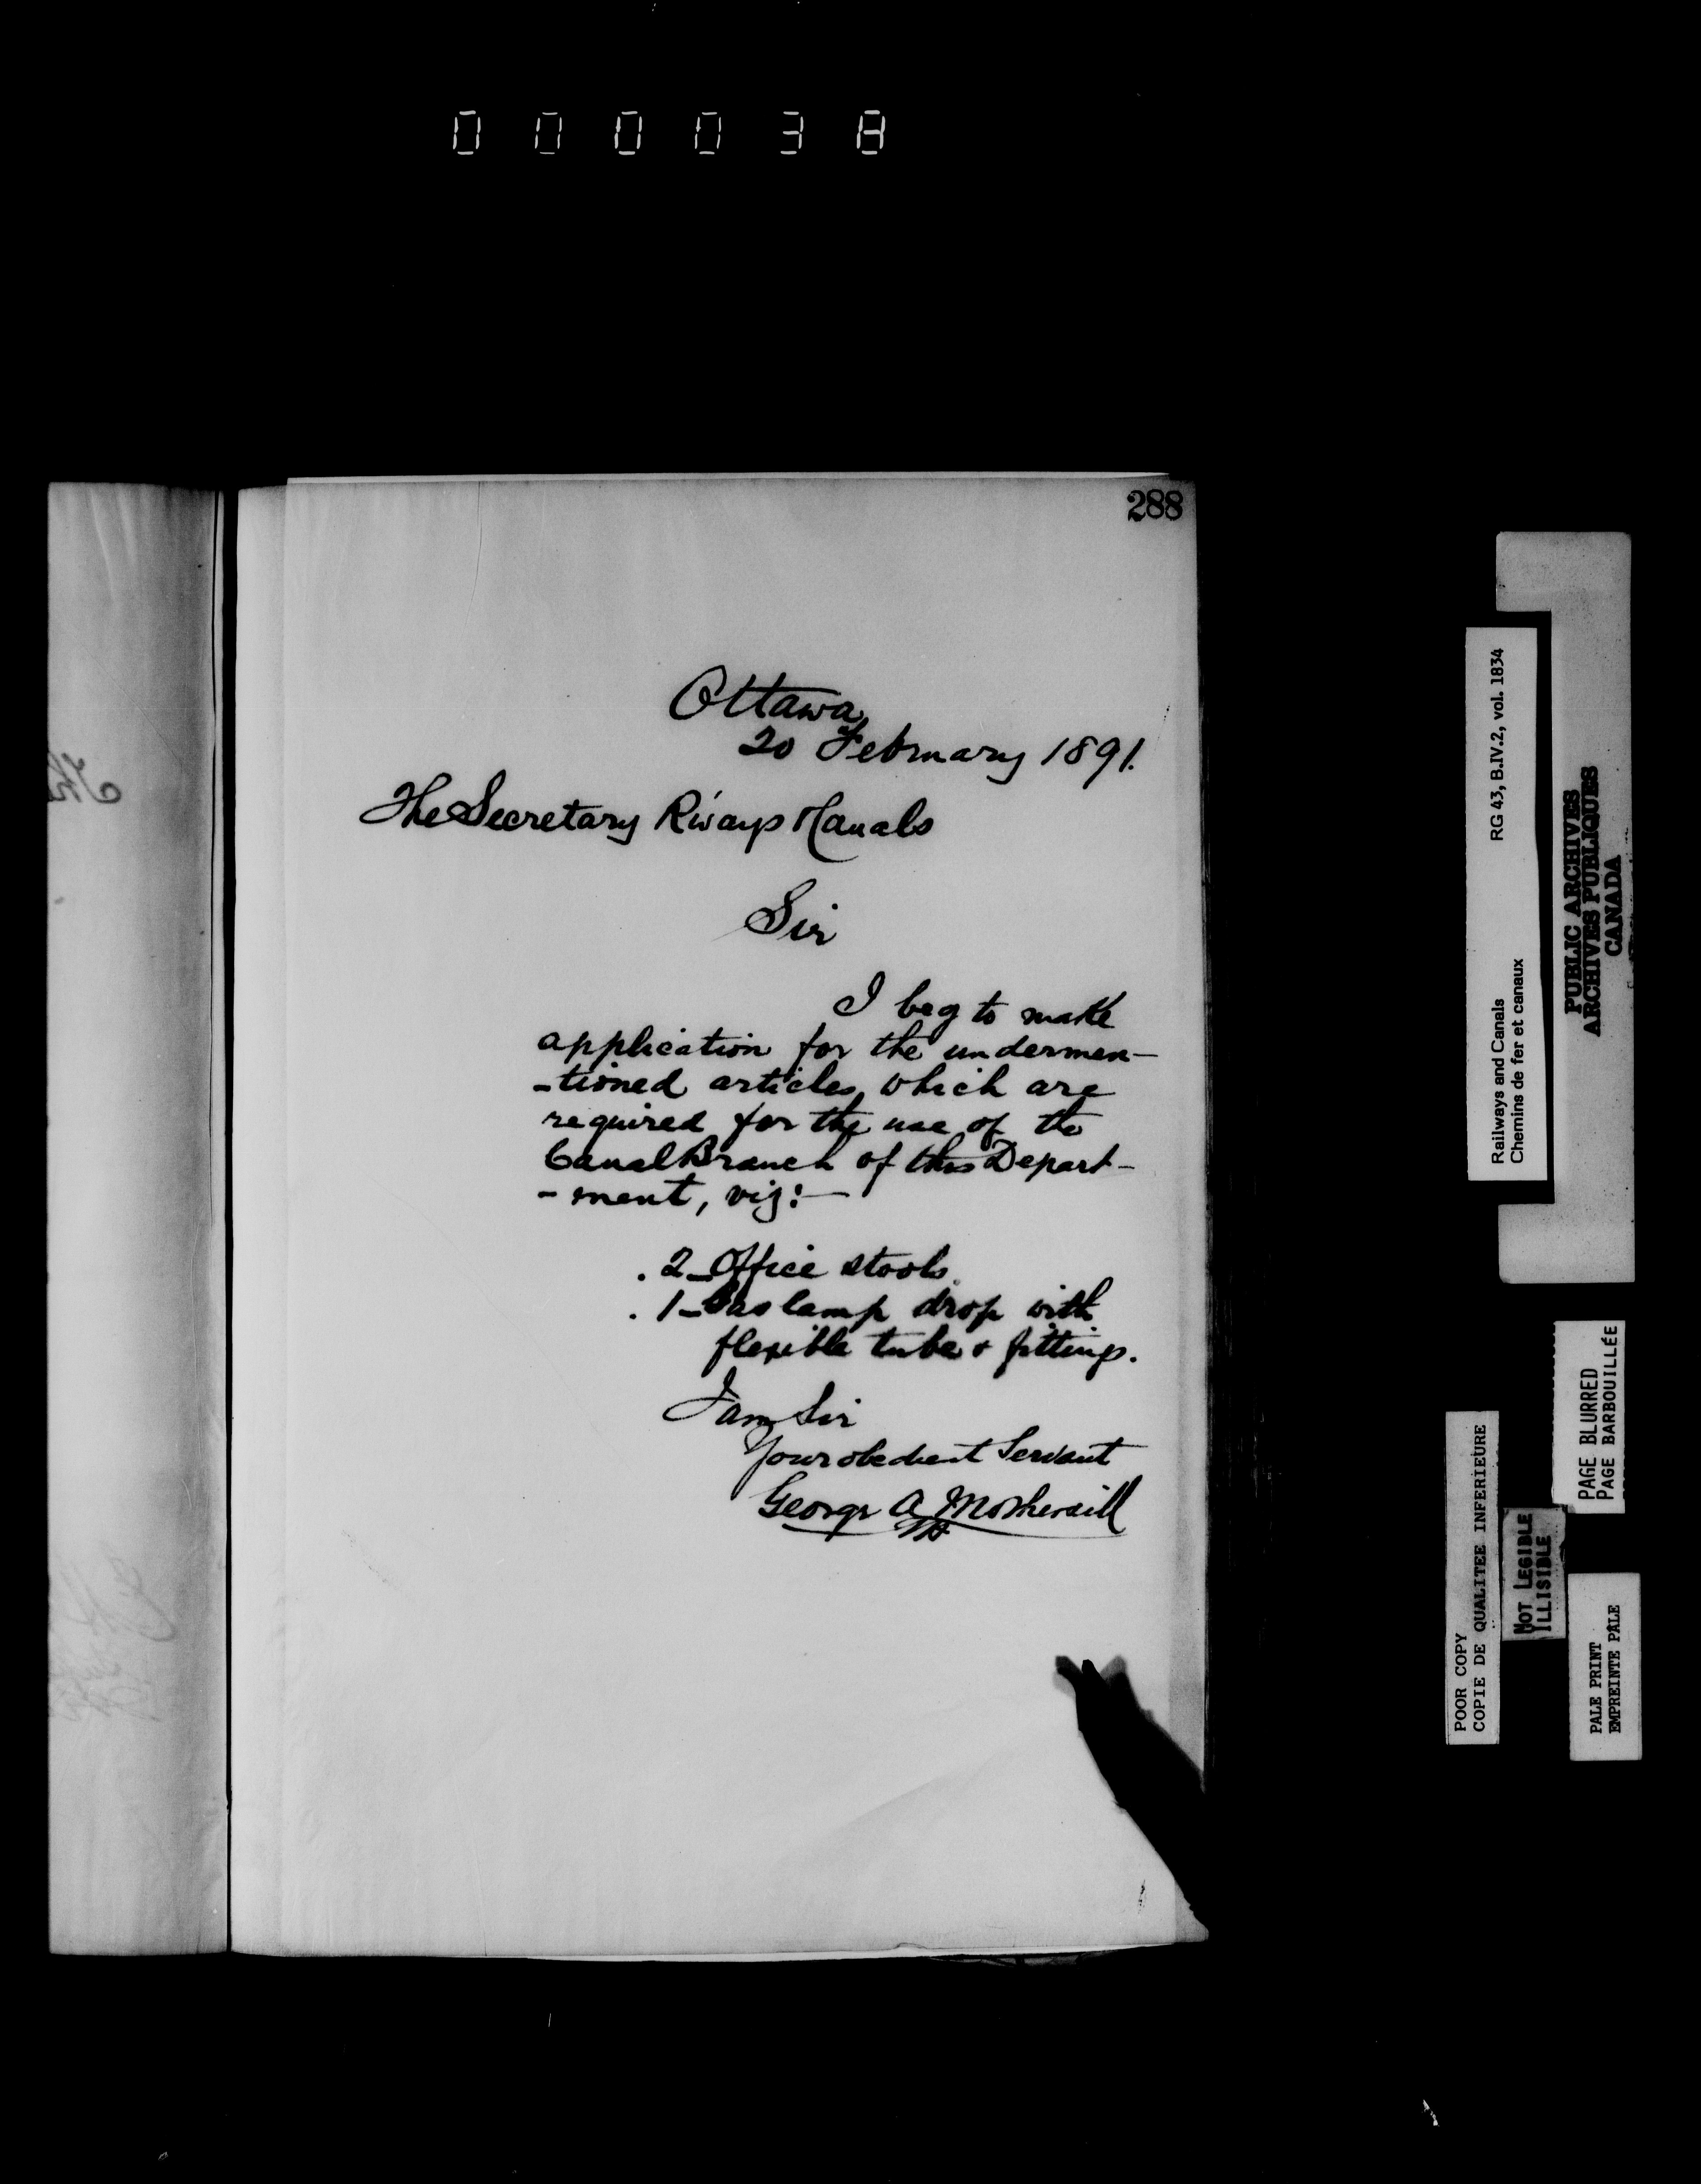 000038
288
Ottawa
20 February 1891.
The Secretary R'ways & Canals
Sir
I beg to make
application for the undermen-
-tioned articles which are
required for the use of the
Canal Branch of this Depart-
-ment, viz:-
. 2 - Office stools.
. 1 - Gas lamp drop with
flexible tube & fittings.
I am Sir
Your obedient Servant
George A Mothersill
Railways and Canals RG 43, B.IV.2, vol. 1834
Chemins de fer et canaux
PUBLIC ARCHIVES
ARCHIVES PUBLIQUES
CANADA
PAGE BLURRED
PAGE BARBOUILLÉE
POOR COPY
COPIE DE QUALITEE INFERIEURE
NOT LEGIBLE
ILLISIBLE
PALE PRINT
EMPREINTE PALE